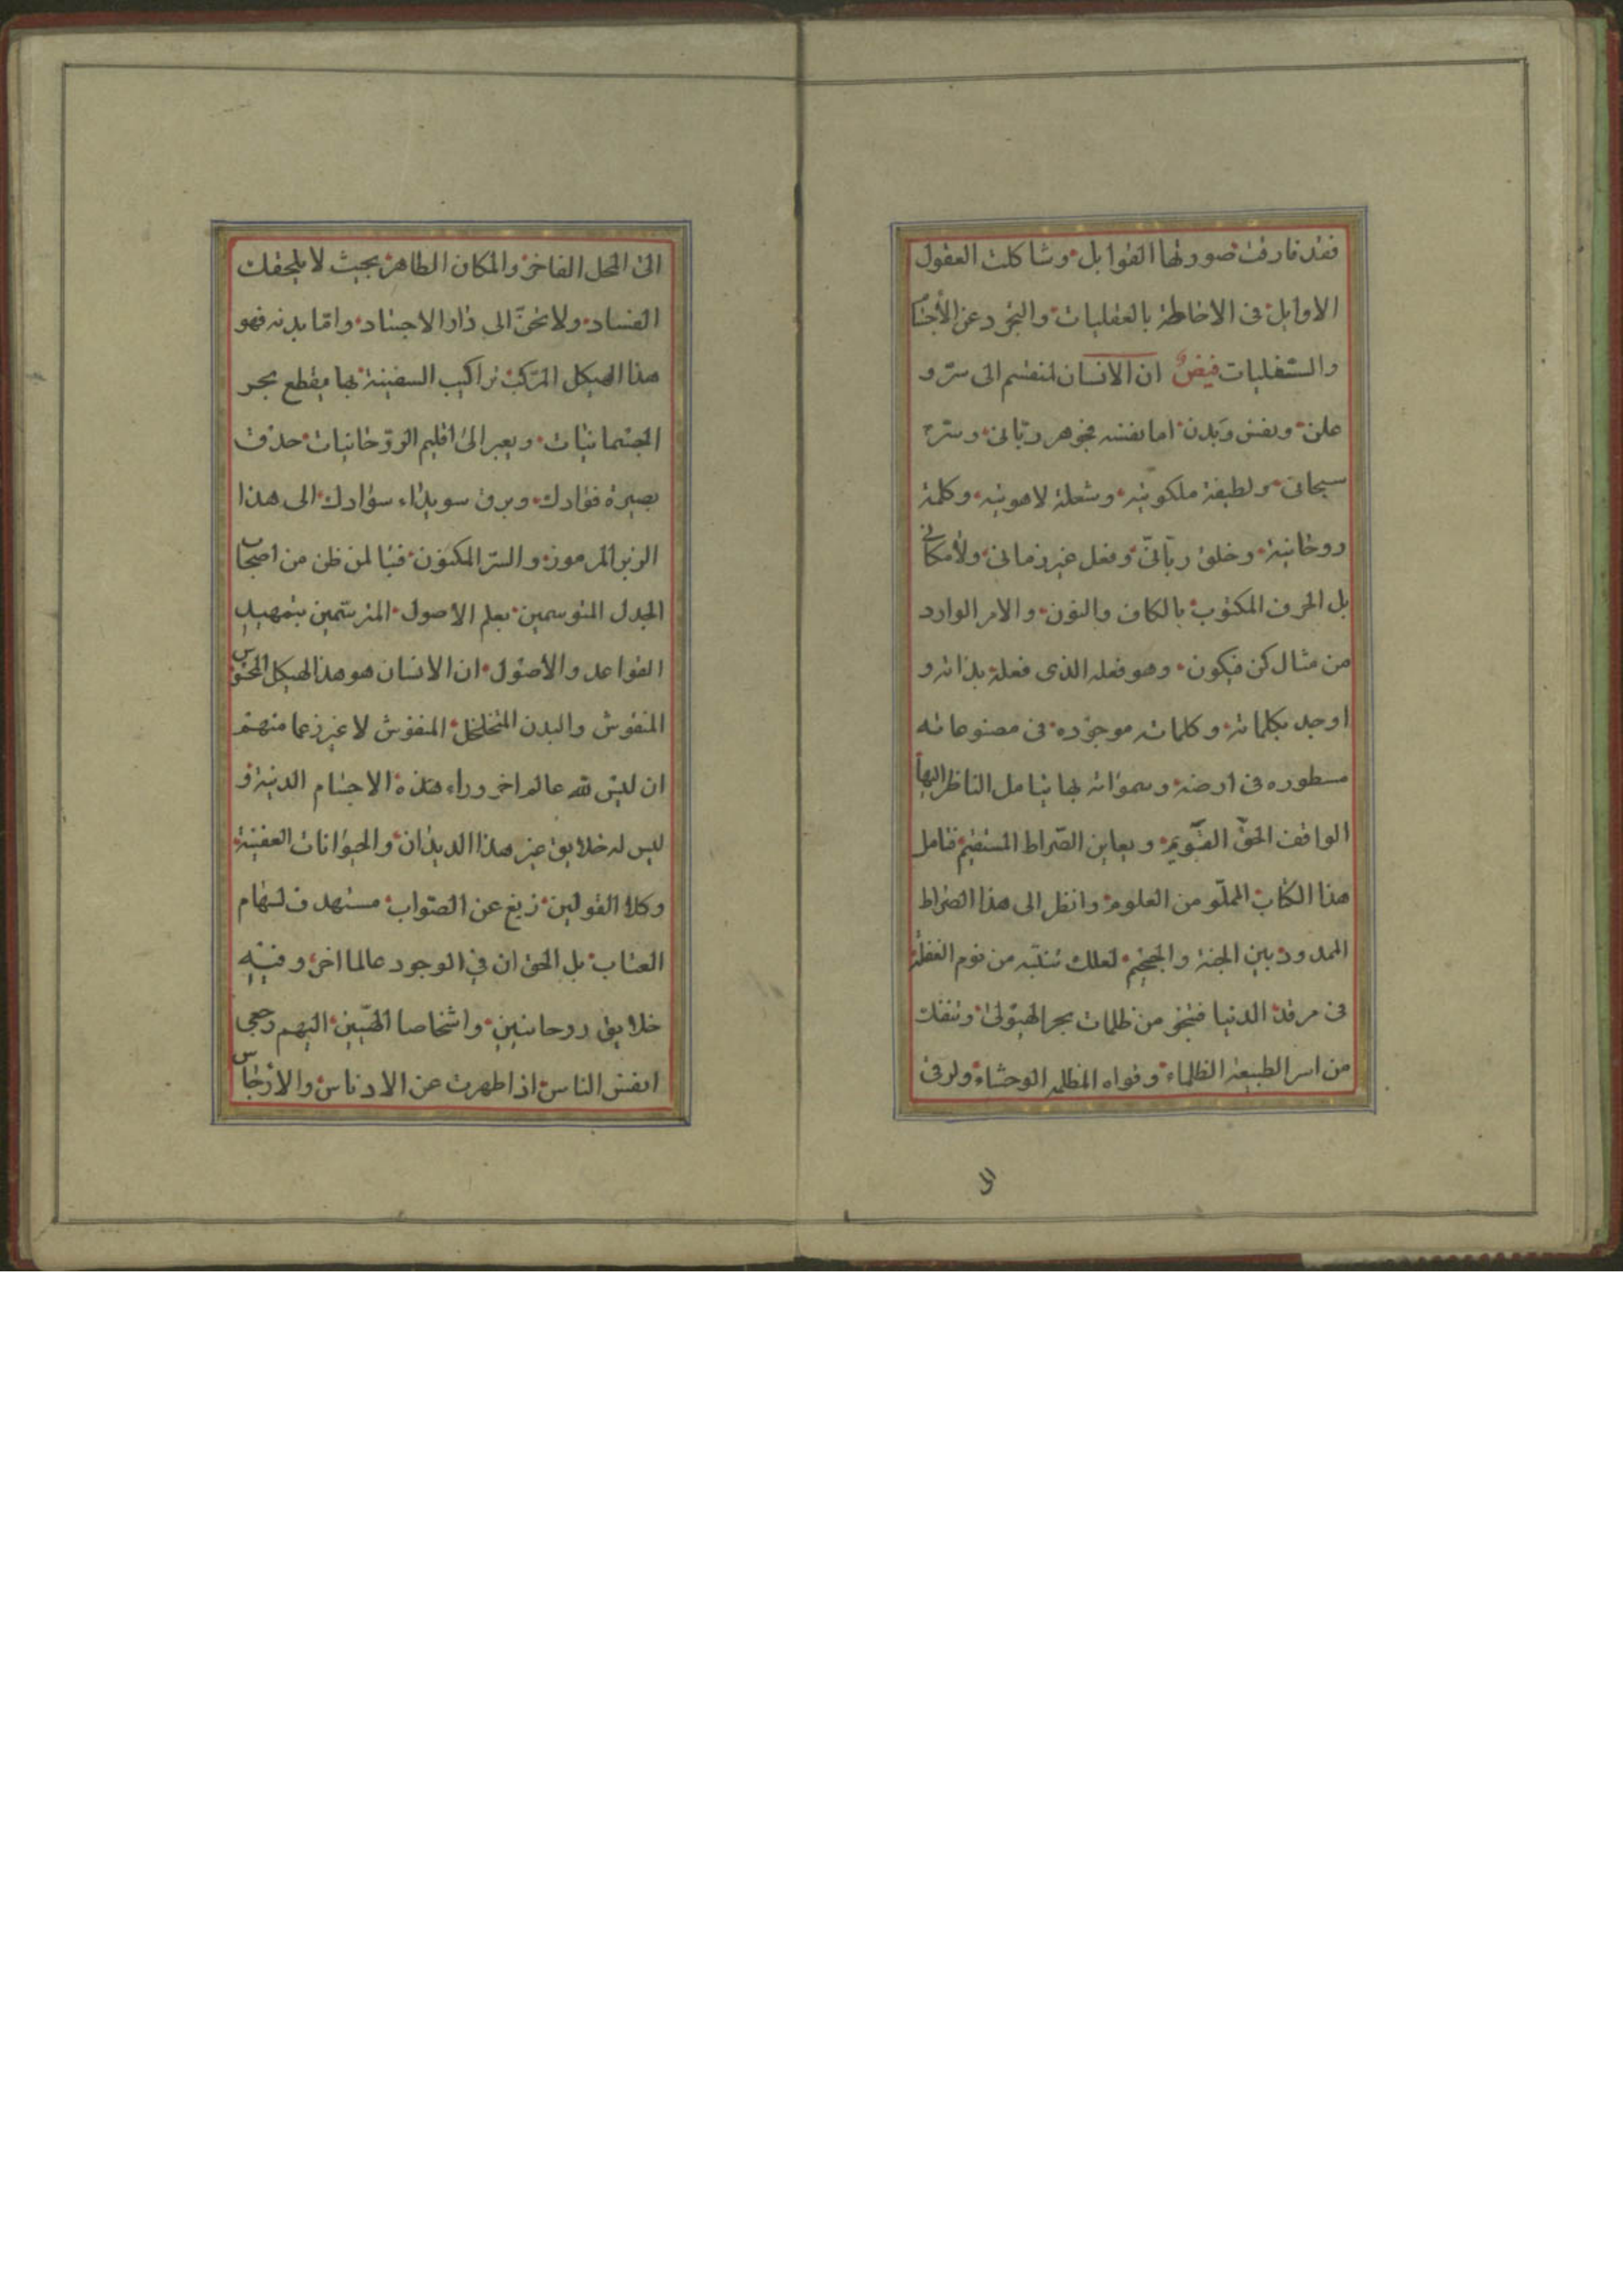 فقد فارقت صورتها القوابل وشاكلت العقول
الاوايل في الاحاطة بالعقليات والتجرد عن الأجسام
والسفليات فيضٌ ان الانسان لمنقسم الى سرّ و
علن ونفس وبدن اما نفسه فجوهر ربّاني وسرّ
سبحاني ولطيفة ملكوتية وشعلة لاهوتية وكلمة
روحانية وخلق ربّانيّ وفعل غير زماني ولامكاني
بل الحرف المكتوب بالكاف والنون والامر الوارد
من مثال كن فيكون وهو فعله الذى فعله بذاته و
اوجد بكلماته وكلماته موجوده في مصنوعاته
مسطوره في ارضه وسمواته بها يتامل الناظر اليها
الواقف الحقّ القويم ويعاين الصّراط المستقيم فتامل
هذا الكتاب المملّو من العلوم وانظر الى هذا الصراط
الممدود بين الجنة والجحيم لعلك تنتبه من نوم الغفلة
في مرقد الدنيا فتنجو من ظلمات بحر الهيولى وتنفك
من اسر الطبيعة الظلماء وقواه المظلمه الوحشاء وترقى
الى
الى المحل الفاخر والمكان الطاهر بحيث لا يلحقك
الفساد ولا تحنّ الى دار الاجساد وامّا بدنه فهو
هذا الهيكل المتركب تراكيب السفينة بها يقطع بحر
الجسمانيات ويعبر الى اقليم الروّحانيات حدق
بصيرة فؤادك وبرق سويداء سوادك الى هذا
الزبر المرموز والسرّ المكنون فتبا لمن ظن من اصحاب
الجدل المتوسمين بعلم الاصول المترسّمين بتمهيد
القواعد والأصول ان الانسان هو هذا الهيكل المحسوس
المنقوش والبدن المتخلخل المنفوش لا غير زعما منهم
ان ليس لله عالم اخر وراء هذه الاجسام الدنية و
ليس له خلايق غير هذا الديدان والحيوانات العفنية
وكلا القولين زيغ عن الصّواب مستهدف لسهام
العتاب بل الحق ان في الوجود عالما اخر وفيه
خلايق روحانيين واشخاصا الهيّين اليهم رجعى
انفس الناس اذا طهرت عن الادناس والارجاس